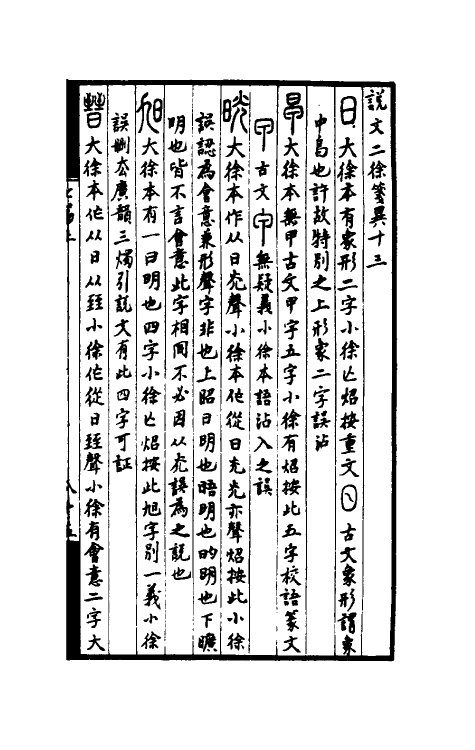 說文二徐箋異十三
日 大徐本有象形二字小徐亡炤按重文 古文象形謂東
中烏也許故特別之上形象二字誤沾
昂 大徐本無甲古文甲字五字小徐有炤按此五字校語篆文
甲古文 無疑義小徐本語沾入之誤
晄 大徐本作从日光聲小徐本作從日光光亦聲炤按此小徐
誤認為會意兼形聲字非也上昭日明也晤明也的明也下曠
明也皆不言會意此字相間不必因从光誤為之說也
旭 大徐本有一曰明也四字小徐亡炤按此旭字別一義小徐
誤刪去廣韻三燭引說文有此四字可証
大徐本作从日从臸小徐作從日臸聲小徐有會意二字大